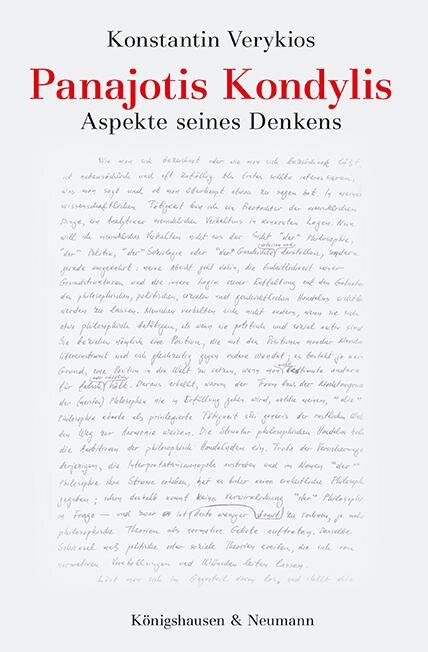 Konstantin Verykios
Panajotis Kondylis
Aspekte seines Denkens
Wie man sich bezeichnet oder wie man sich bezeichnen läßt,
ist nebensächlich und oft zufällig. Uns sollte interessieren,
was man sagt und ob man überhaupt etwas zu sagen hat. In meiner
wissenschaftlichen Tätigkeit bin ich ein Beobachter der menschlichen
Dinge, ein Analytiker menschlichen Verhaltens in konkreten Lagen. Nun
will ich menschliches Verhalten nicht aus der Sicht "der" Philosophie,
"der" Politik, "der" Soziologie oder "der" Geschichte darstellen, sondern
gerade umgekehrt: meine Absicht geht dahin, die Einheitlichkeit seiner
Grundstrukturen und die innere Logik seiner Entfaltung auf den Gebieten
des philosophischen, politischen, sozialen und geschichtlichen Handelns sichtbar
werden zu lassen. Menschen verhalten sich nicht anders, wenn sie sich
etwa philosophisch betätigen, als wenn sie politisch und sozial aktiv sind.
Sie beziehen nämlich eine Position, die mit den Positionen mancher Menschen
übereinstimmt und sich gleichzeitig gegen andere wendet; es besteht ja kein
Grund, eine Position in die Welt zu setzen, wenn man bestimmte andere
für falsch hält. Daraus erhellt, warum der
der (meisten) Philosophen nie in Erfüllung gehen wird, welche meinen, "die"
Philosophie könnte als privilegierte Tätigkeit sui generis der restlichen Welt
den Weg zur Harmonie weisen. Die Struktur philosophischen Handelns
die Ambitionen der philosophisch Handelnden ein. Trotz der Versicherungen
derjenigen, die Interpretationsmonopole anstreben und im Namen "der"
Philosophie ihre Stimme erheben, hat es bisher keine einheitliche Philosophie
gegeben; schon deshalb kommt keine Verwirklichung "der" Philosophie
in Frage — und zwar ist desto weniger damit zu rechnen, je mehr
philosophische Theorien als normative Gebote auftreten. Dasselbe
Schicksal muß politische oder soziale Theorien ereilen, die sich von
normativen Vorstellungen und Wünschen leiten lassen.
Löst man sich im Gegenteil davon los, und stellt die
Königshausen & Neumann